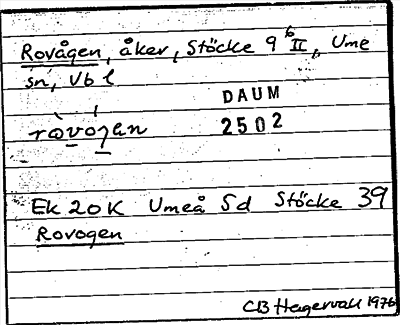 Rovågen, åker, Stöcke 9 b II, Ume
sn, Vb l
DAUM
ròvógan 2502
Ek 20K Umeå Sd Stöcke 39
Rovogen
CB Hagervall 1976